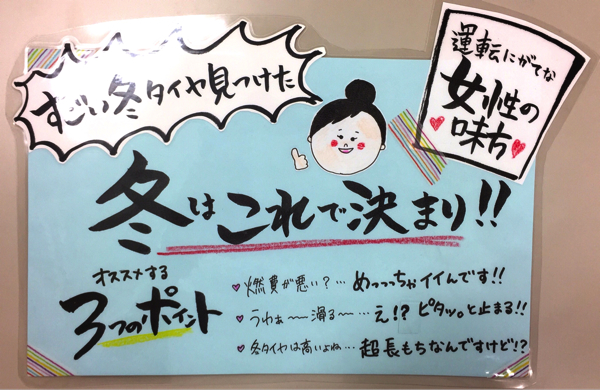 すごい冬タイヤ見つけた
運転にがてな
女性の
味方
冬はこれで決まり!!
オススメする
3つのポイント
燃費が悪い?…めっっっちゃイイんです!!
うわぁ〜〜滑る〜…え!?ピタッ。と止まる!!
冬タイヤは高いよね…超長もちなんですけど!?